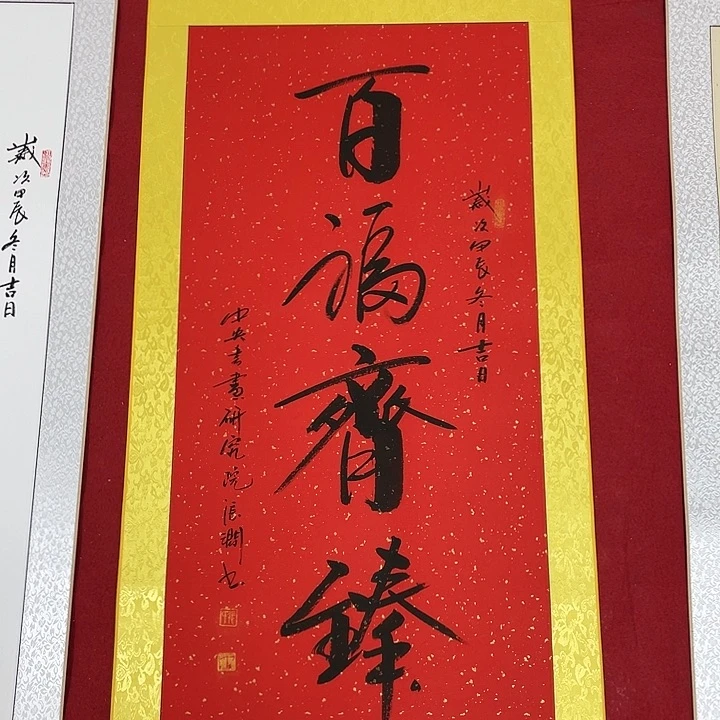 百福齊臻
歲次甲辰冬月吉日
中央書畫研究院張瀾书
歲次甲辰冬月吉日